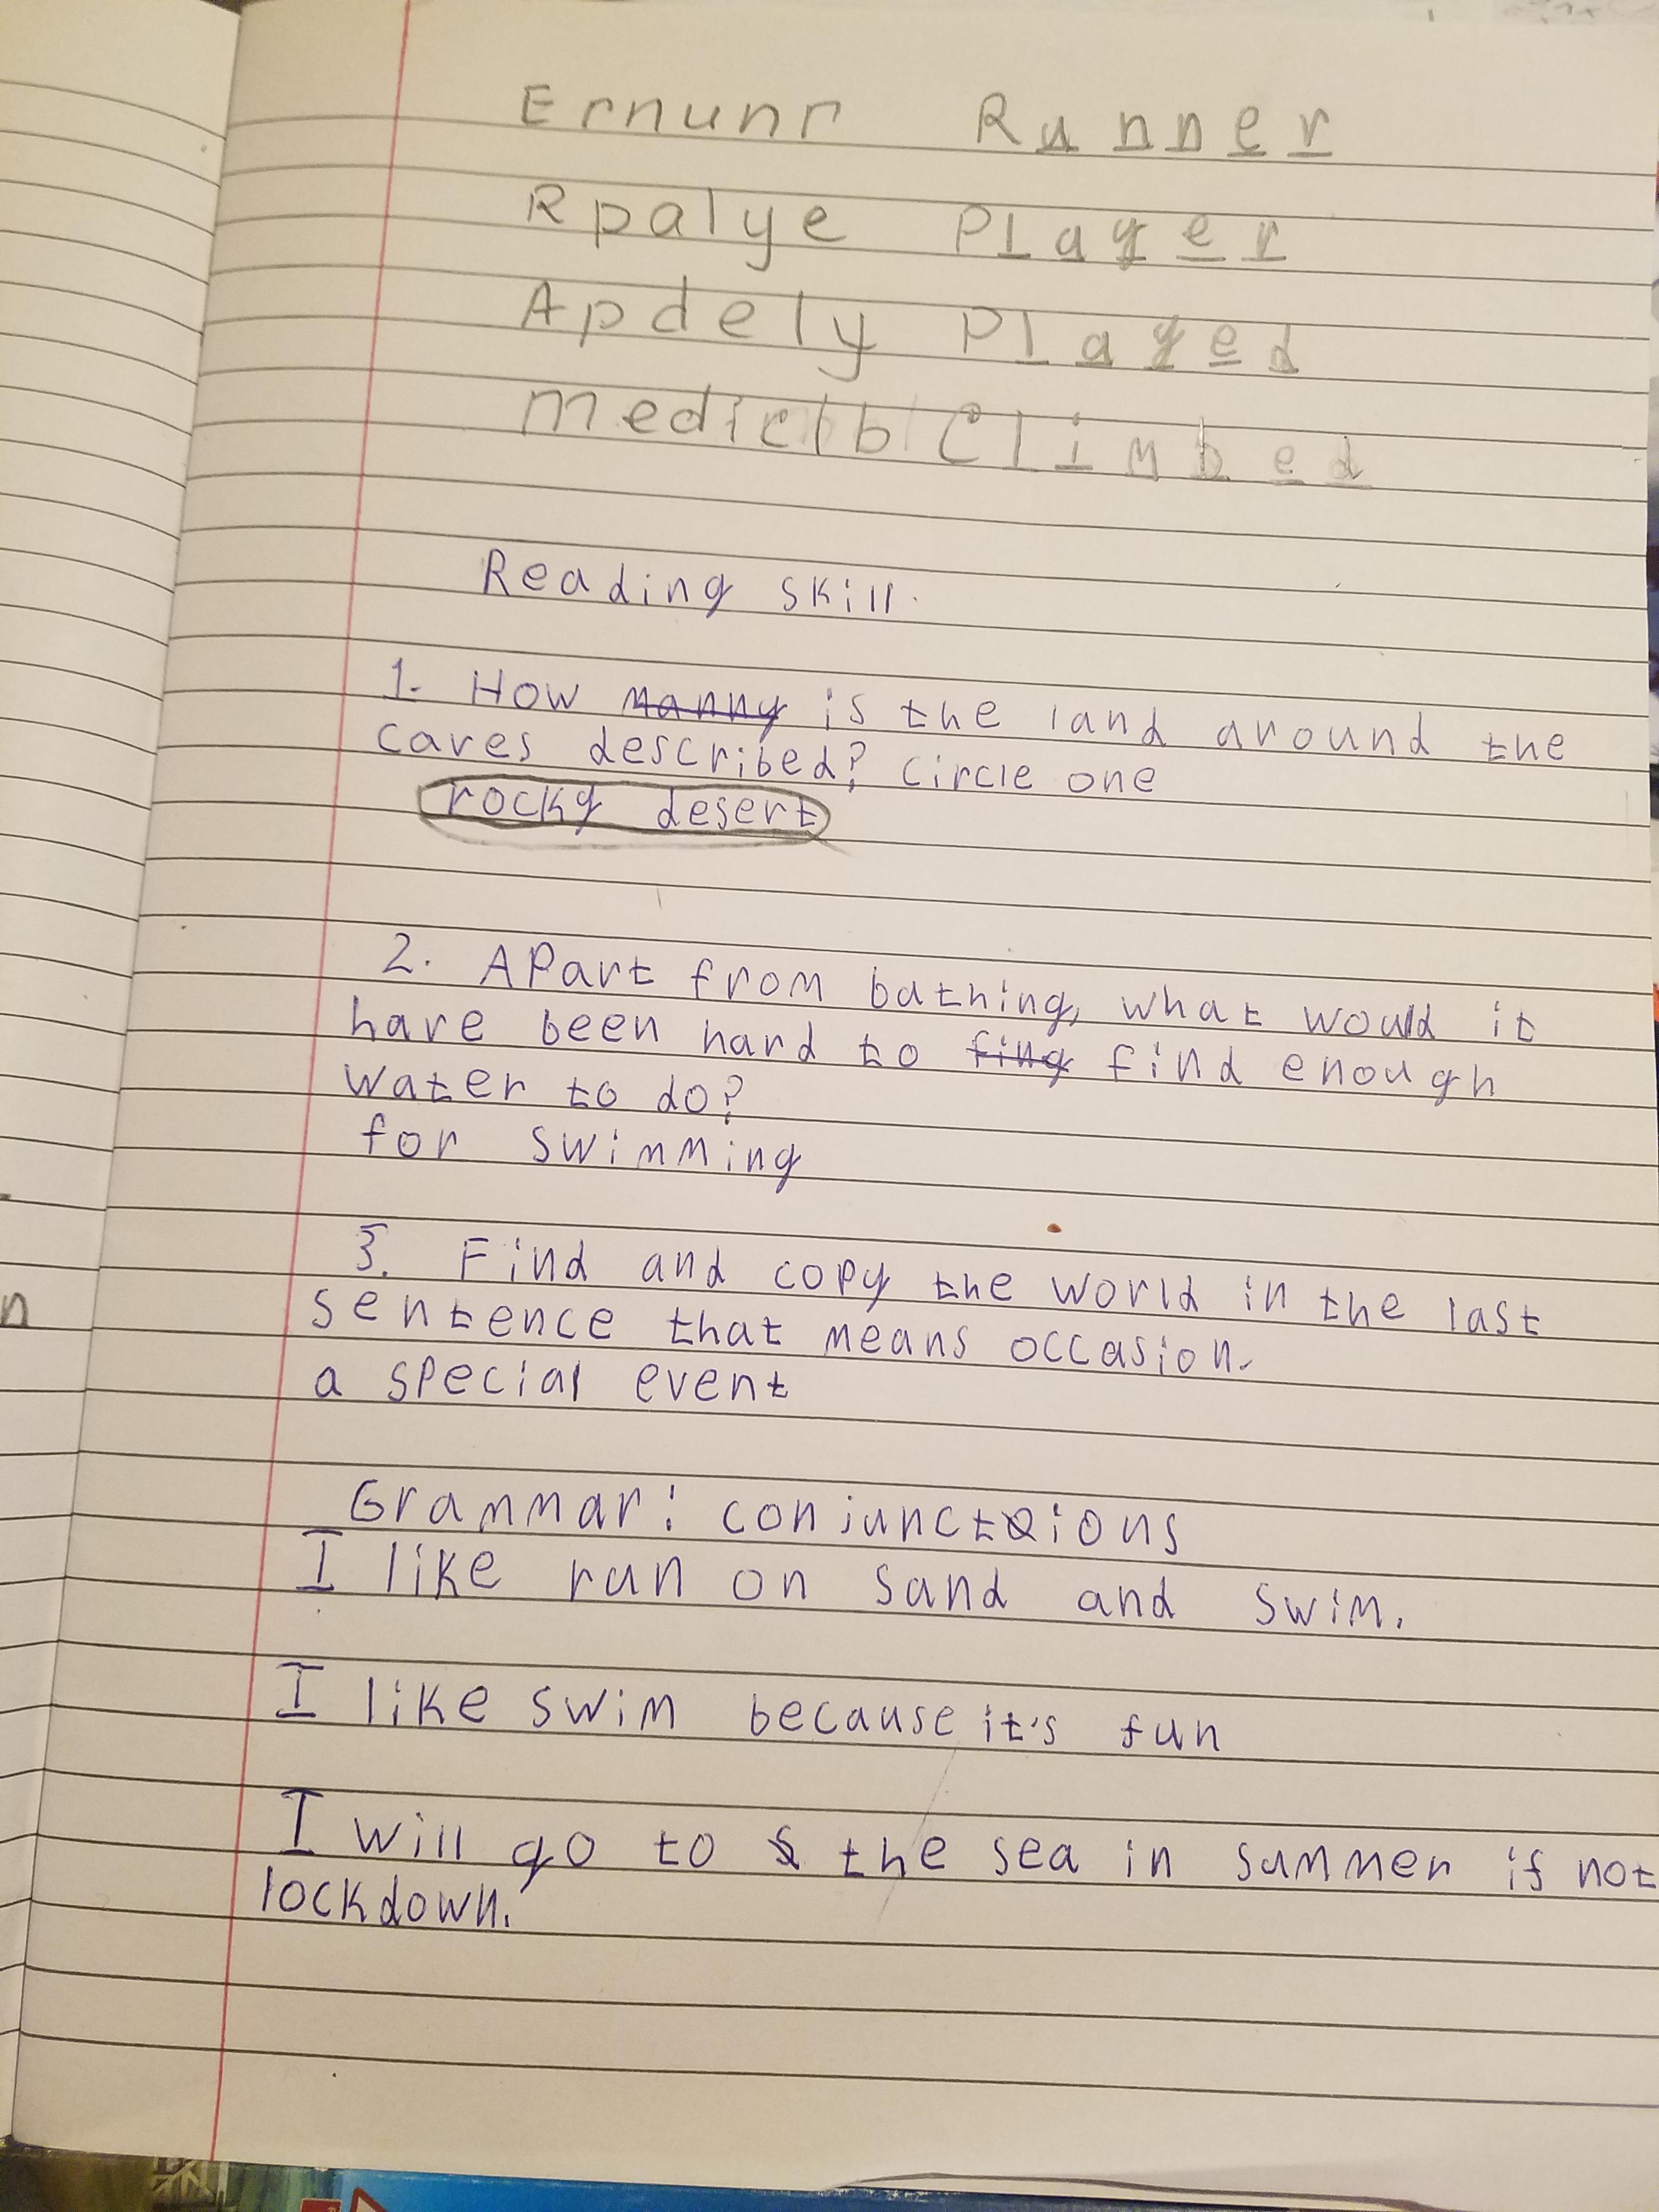 Ernunr Runner
Rpalye Player
Apdely Played
Mediclb Climbed
Reading skill.
1. How manny is the land around the
caves described? Circle one
rocky desert
2. APart from bathing, what would it
have been hard to fing find enough
water to do?
for swimming
3. Find and copy the world in the last
sentence that means occasion.
a special event
Grammar: conjunctions
I like run on sand and swim.
I like swim because it's fun
I will go to the sea in summer if not
lockdown.
n